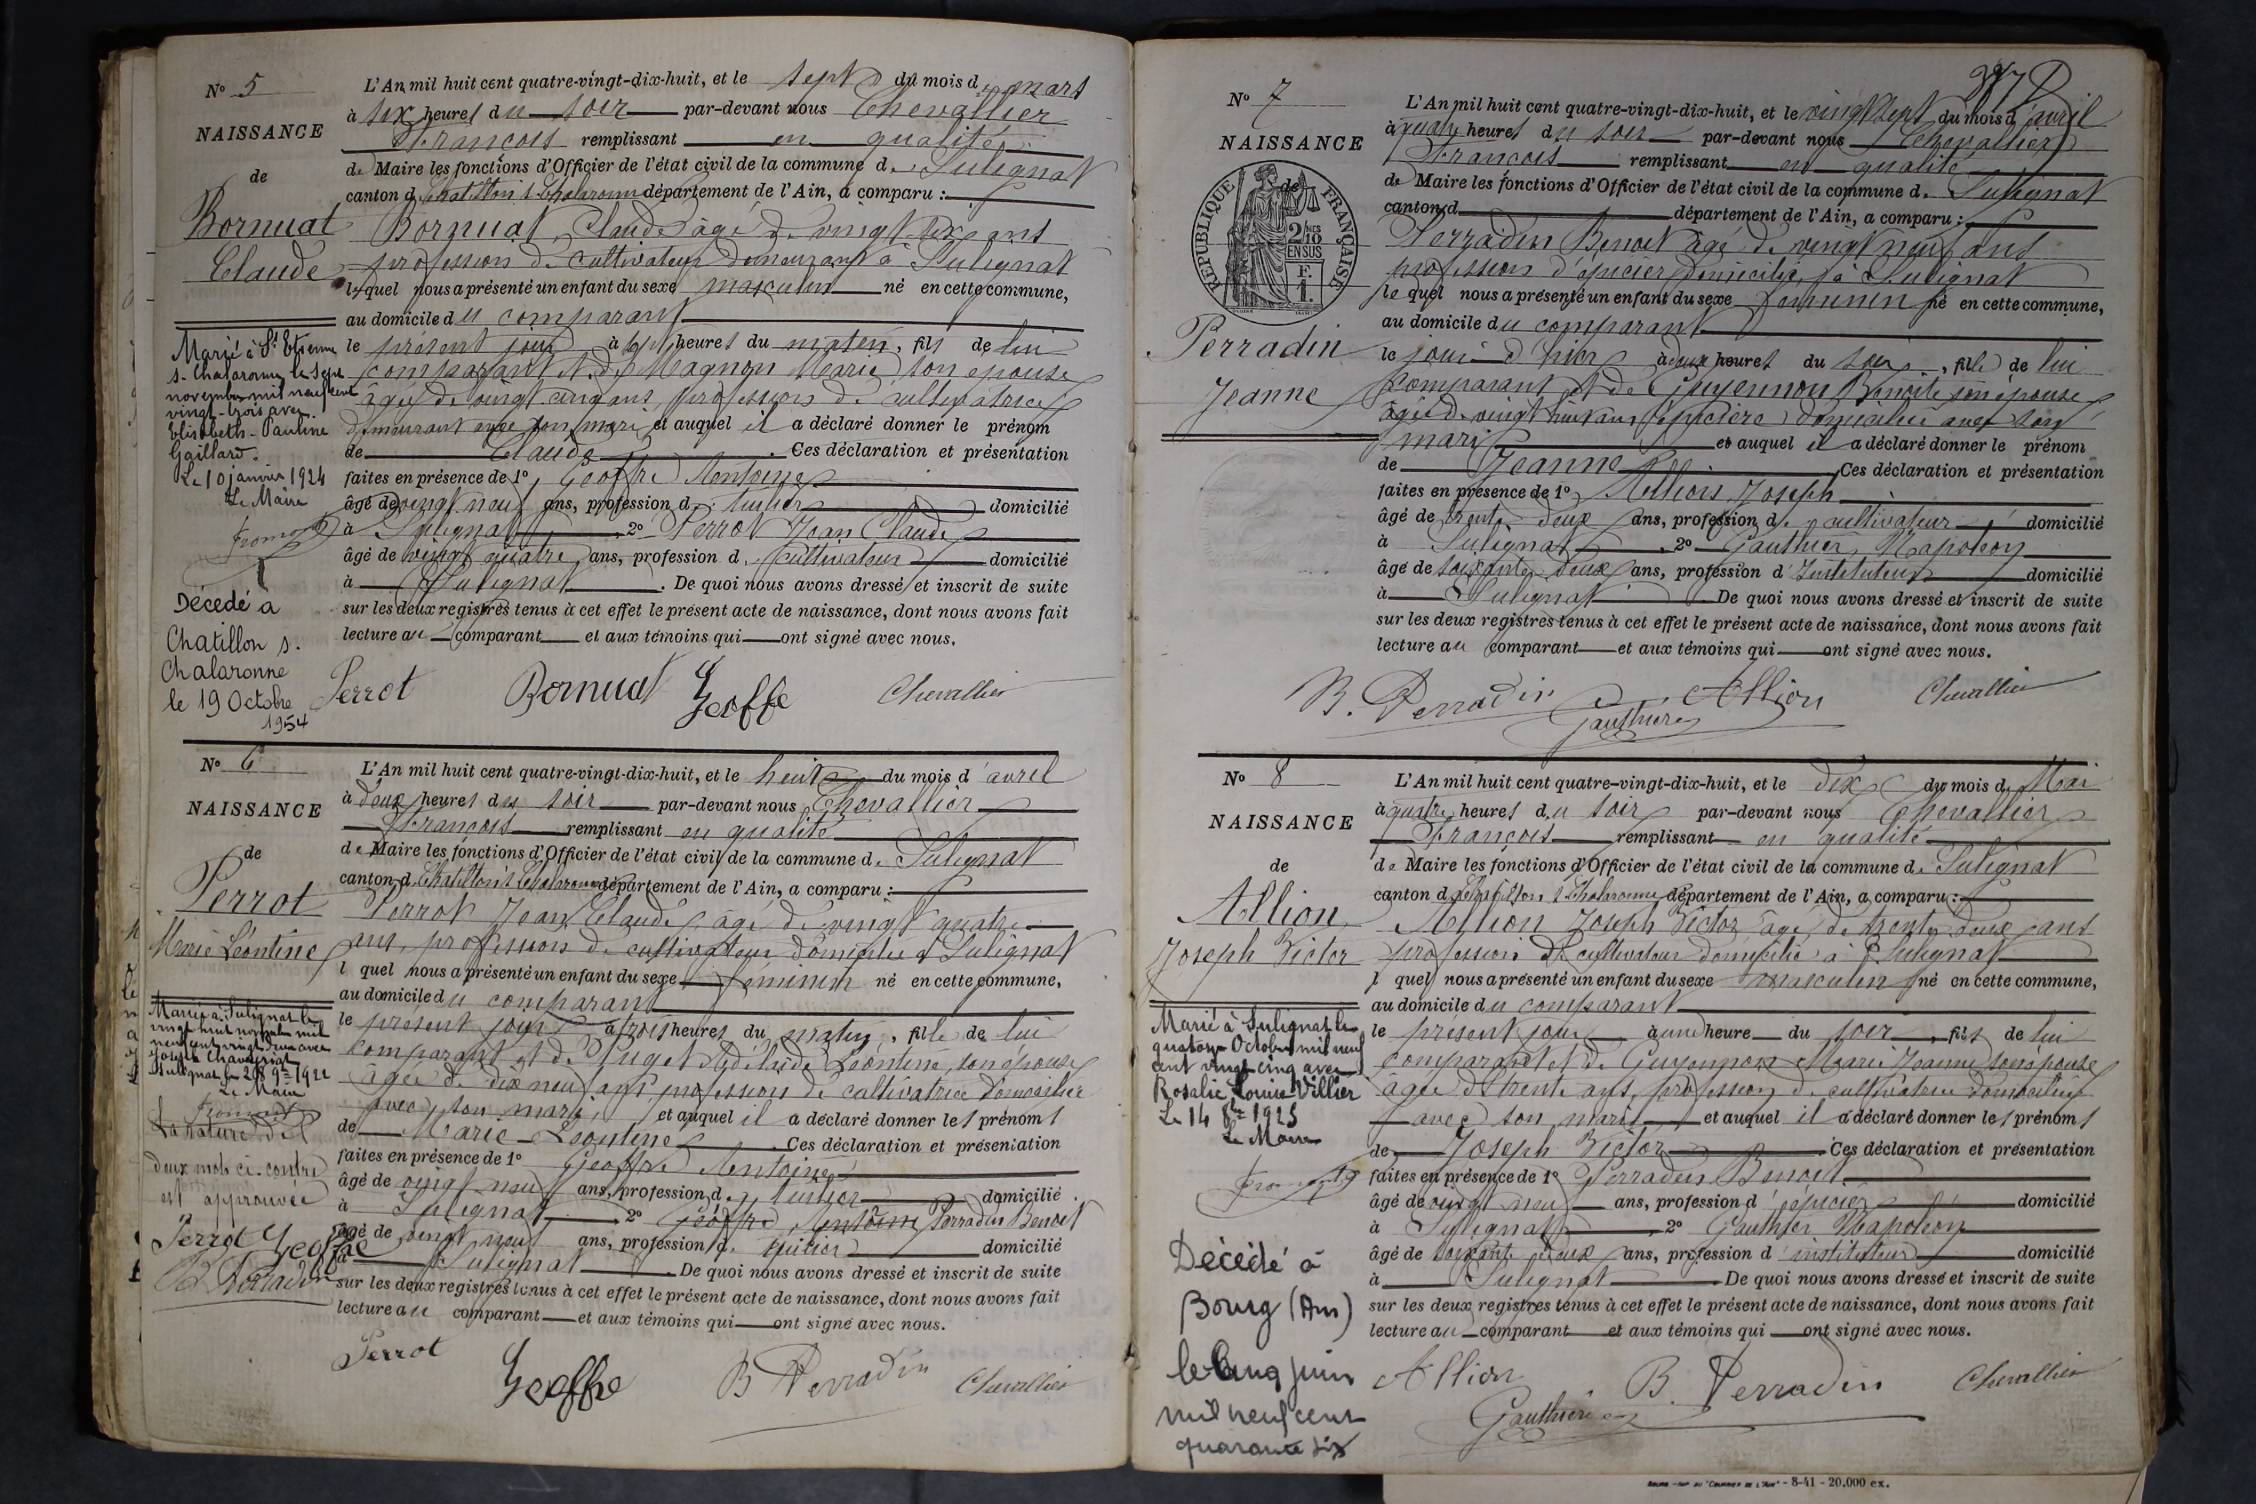 N° 5
NAISSANCE
de
Bornuat
Claude
Marié à St Etienne
s. Chalaronne le sept
novembre mil neuf cent
vingt-trois avec
Elisabeth-Pauline
Gaillard.
Le 10 janvier 1924
Le Maire
Décedé à
Chatillon s.
Chalaronne
le 19 Octobre
1954
L'An mil huit cent quatre-vingt-dix-huit, et le sept du mois de mars
à six heures du soir par-devant nous Chevallier
François remplissant en qualité
de Maire les fonctions d'Officier de l'état civil de la commune de Sulignat
canton de Chatillon s Chalaronne département de l'Ain, a comparu :
Bornuat Claude âgé de vingt six ans
profession de cultivateur demeurant à Sulignat
lequel nous a présenté un enfant du sexe masculin né en cette commune,
au domicile du comparant
le présent jour à heures du matin, fils de lui
comparant et de Magnon Marie son épouse
âgée de vingt cinq ans, profession de cultivatrice
demeurant avec son mari et auquel il a déclaré donner le prénom
de Claude. Ces déclaration et présentation
faites en présence de 1° Geoffre Antoine
âgé de vingt neuf ans, profession de tuilier domicilié
à Sulignat, 2° Perrot Jean Claude
âgé de vingt quatre ans, profession de cultivateur domicilié
à Sulignat. De quoi nous avons dressé et inscrit de suite
sur les deux registres tenus à cet effet le présent acte de naissance, dont nous avons fait
lecture au comparant et aux témoins qui ont signé avec nous.
Perrot Bornuat Geoffre Chevallier
N° 6
NAISSANCE
de
Perrot
Marie Léontine
Mariée à Sulignat le
vingt huit novembre mil
neuf cent vingt deux avec
Joseph Chavagniat
Sulignat le 28 9bre 1922
Le Maire
La rature de
deux mots ci-contre
est approuvée
Perrot Geoffre
B Perradin
L'An mil huit cent quatre-vingt-dix-huit, et le huit du mois d'avril
à deux heures du soir par-devant nous Chevallier
François remplissant en qualité
de Maire les fonctions d'Officier de l'état civil de la commune de Sulignat
canton de Chatillon s Chalaronne département de l'Ain, a comparu :
Perrot Jean Claude, âgé de vingt quatre
ans, profession de cultivateur domicilié à Sulignat
l quel nous a présenté un enfant du sexe féminin né en cette commune,
au domicile du comparant
le présent jour à trois heures du matin, fille de lui
comparant et de Puget Adélaïde Léontine, son épouse
âgée de dix neuf ans, profession de cultivatrice domiciliée
avec son mari et auquel il a déclaré donner les prénoms
de Marie-Léontine. Ces déclaration et présentation
faites en présence de 1° Geoffre Antoine
âgé de vingt neuf ans, profession de tuilier domicilié
à Sulignat, 2° Geoffre Antoine Perradin Benoit
âgé de vingt neuf ans, profession d domicilié
à Sulignat. De quoi nous avons dressé et inscrit de suite
sur les deux registres tenus à cet effet le présent acte de naissance, dont nous avons fait
lecture au comparant et aux témoins qui ont signé avec nous.
Perrot Geoffre B Perradin Chevallier
N° 7
NAISSANCE
de
REPUBLIQUE FRANÇAISE
2/10 EN SUS
F. 1.
Perradin
Jeanne
L'An mil huit cent quatre-vingt-dix-huit, et le vingt sept du mois d'avril
à quatre heures du soir par-devant nous Chevallier
François remplissant en qualité
de Maire les fonctions d'Officier de l'état civil de la commune de Sulignat
canton d département de l'Ain, a comparu :
Perradin Benoit âgé de vingt neuf ans
profession d'épicier, domicilié à Sulignat
le quel nous a présenté un enfant du sexe féminin né en cette commune,
au domicile du comparant
le jour d'hier à deux heures du soir, fille de lui
comparant et de Guyennon Benoite son épouse
âgée de vingt huit ans épicière domiciliée avec son
mari et auquel il a déclaré donner le prénom
de Jeanne. Ces déclaration et présentation
faites en présence de 1° Allion Joseph
âgé de trente deux ans, profession de cultivateur domicilié
à Sulignat, 2° Gauthier Napoléon
âgé de soixante deux ans, profession d'Instituteur domicilié
à Sulignat De quoi nous avons dressé et inscrit de suite
sur les deux registres tenus à cet effet le présent acte de naissance, dont nous avons fait
lecture au comparant et aux témoins qui ont signé avec nous.
B. Perradin Gauthier Allion Chevallier
N° 8
NAISSANCE
de
Allion
Joseph Victor
Marié à Sulignat le
quatorze Octobre mil neuf
cent vingt cinq avec
Rosalie Louise Villier
Le 14 8bre 1925
Le Maire
Décédé à
Bourg (Ain)
le cinq juin
mil neuf cent
quarante six
L'An mil huit cent quatre-vingt-dix-huit, et le dix du mois de Mai
à quatre heures du soir par-devant nous Chevallier
François remplissant en qualité
de Maire les fonctions d'Officier de l'état civil de la commune de Sulignat
canton de Chatillon s Chalaronne département de l'Ain, a comparu :
Allion Joseph Victor âgé de trente deux ans
profession de cultivateur domicilié à Sulignat
l quel nous a présenté un enfant du sexe masculin né en cette commune,
au domicile du comparant
le présent jour à une heure du soir, fils de lui
comparant et de Guyennon Marie Jeanne son épouse
âgée de trente ans, profession de cultivatrice domiciliée
avec son mari et auquel il a déclaré donner les prénoms
de Joseph Victor Ces déclaration et présentation
faites en présence de 1° Perradin Benoit
âgé de vingt neuf ans, profession d'épicier domicilié
à Sulignat, 2° Gauthier Napoléon
âgé de soixante deux ans, profession d'instituteur domicilié
à Sulignat. De quoi nous avons dressé et inscrit de suite
sur les deux registres tenus à cet effet le présent acte de naissance, dont nous avons fait
lecture au comparant et aux témoins qui ont signé avec nous.
Allion Gauthier B. Perradin Chevallier
8-41 - 20.000 ex.